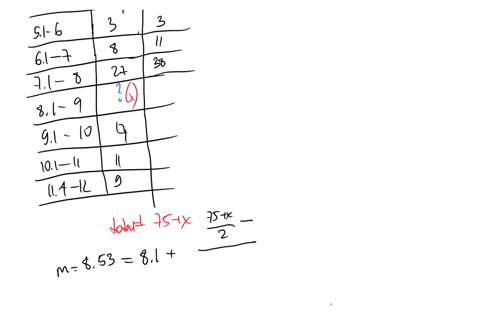 5.1-6 3 3
6.1-7 8 11
7.1-8 27 38
8.1-9 ? (x)
9.1-10 17
10.1-11 11
11.4-12 9
total= 75+x
75+x/2 -
m= 8.53 = 8.1 +